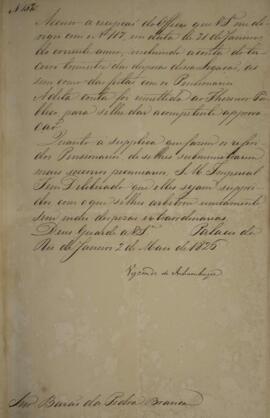 Accuso a recepção do Officio que V.Sª me di-
rigio com o Nº 117 em data de 21 de Janeiro
do corrente anno, incluindo a conta do ter-
ceiro trimestre das despezas dessa Legação, as
sim como das feitas com os Pensionarios
A dita conta foi remettida ao Thesouro Pu-
blico para se lhe dar a competente approva
ção.
Quanto a supplica que fazem os referi
dos Pensionarios de se lhes subministrarem
mais soccorros pecuniarios, S. M. o Imperador
Tem Deliberado que elles sejam suppri-
dos com o que se lhes arbitrou unicamente
sem mais despezas extraordinarias.
Deus Guarde a V.Sª Palacio do
Rio de Janeiro 2 de Maio de 1826
Visconde de Inhambupe
Snr Barão da Pedra Branca